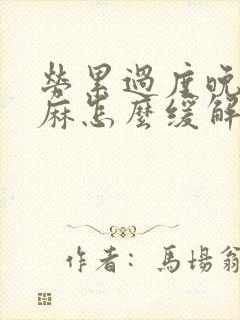 勞累過度晚
麻怎麼緩解
作者：馬場翁